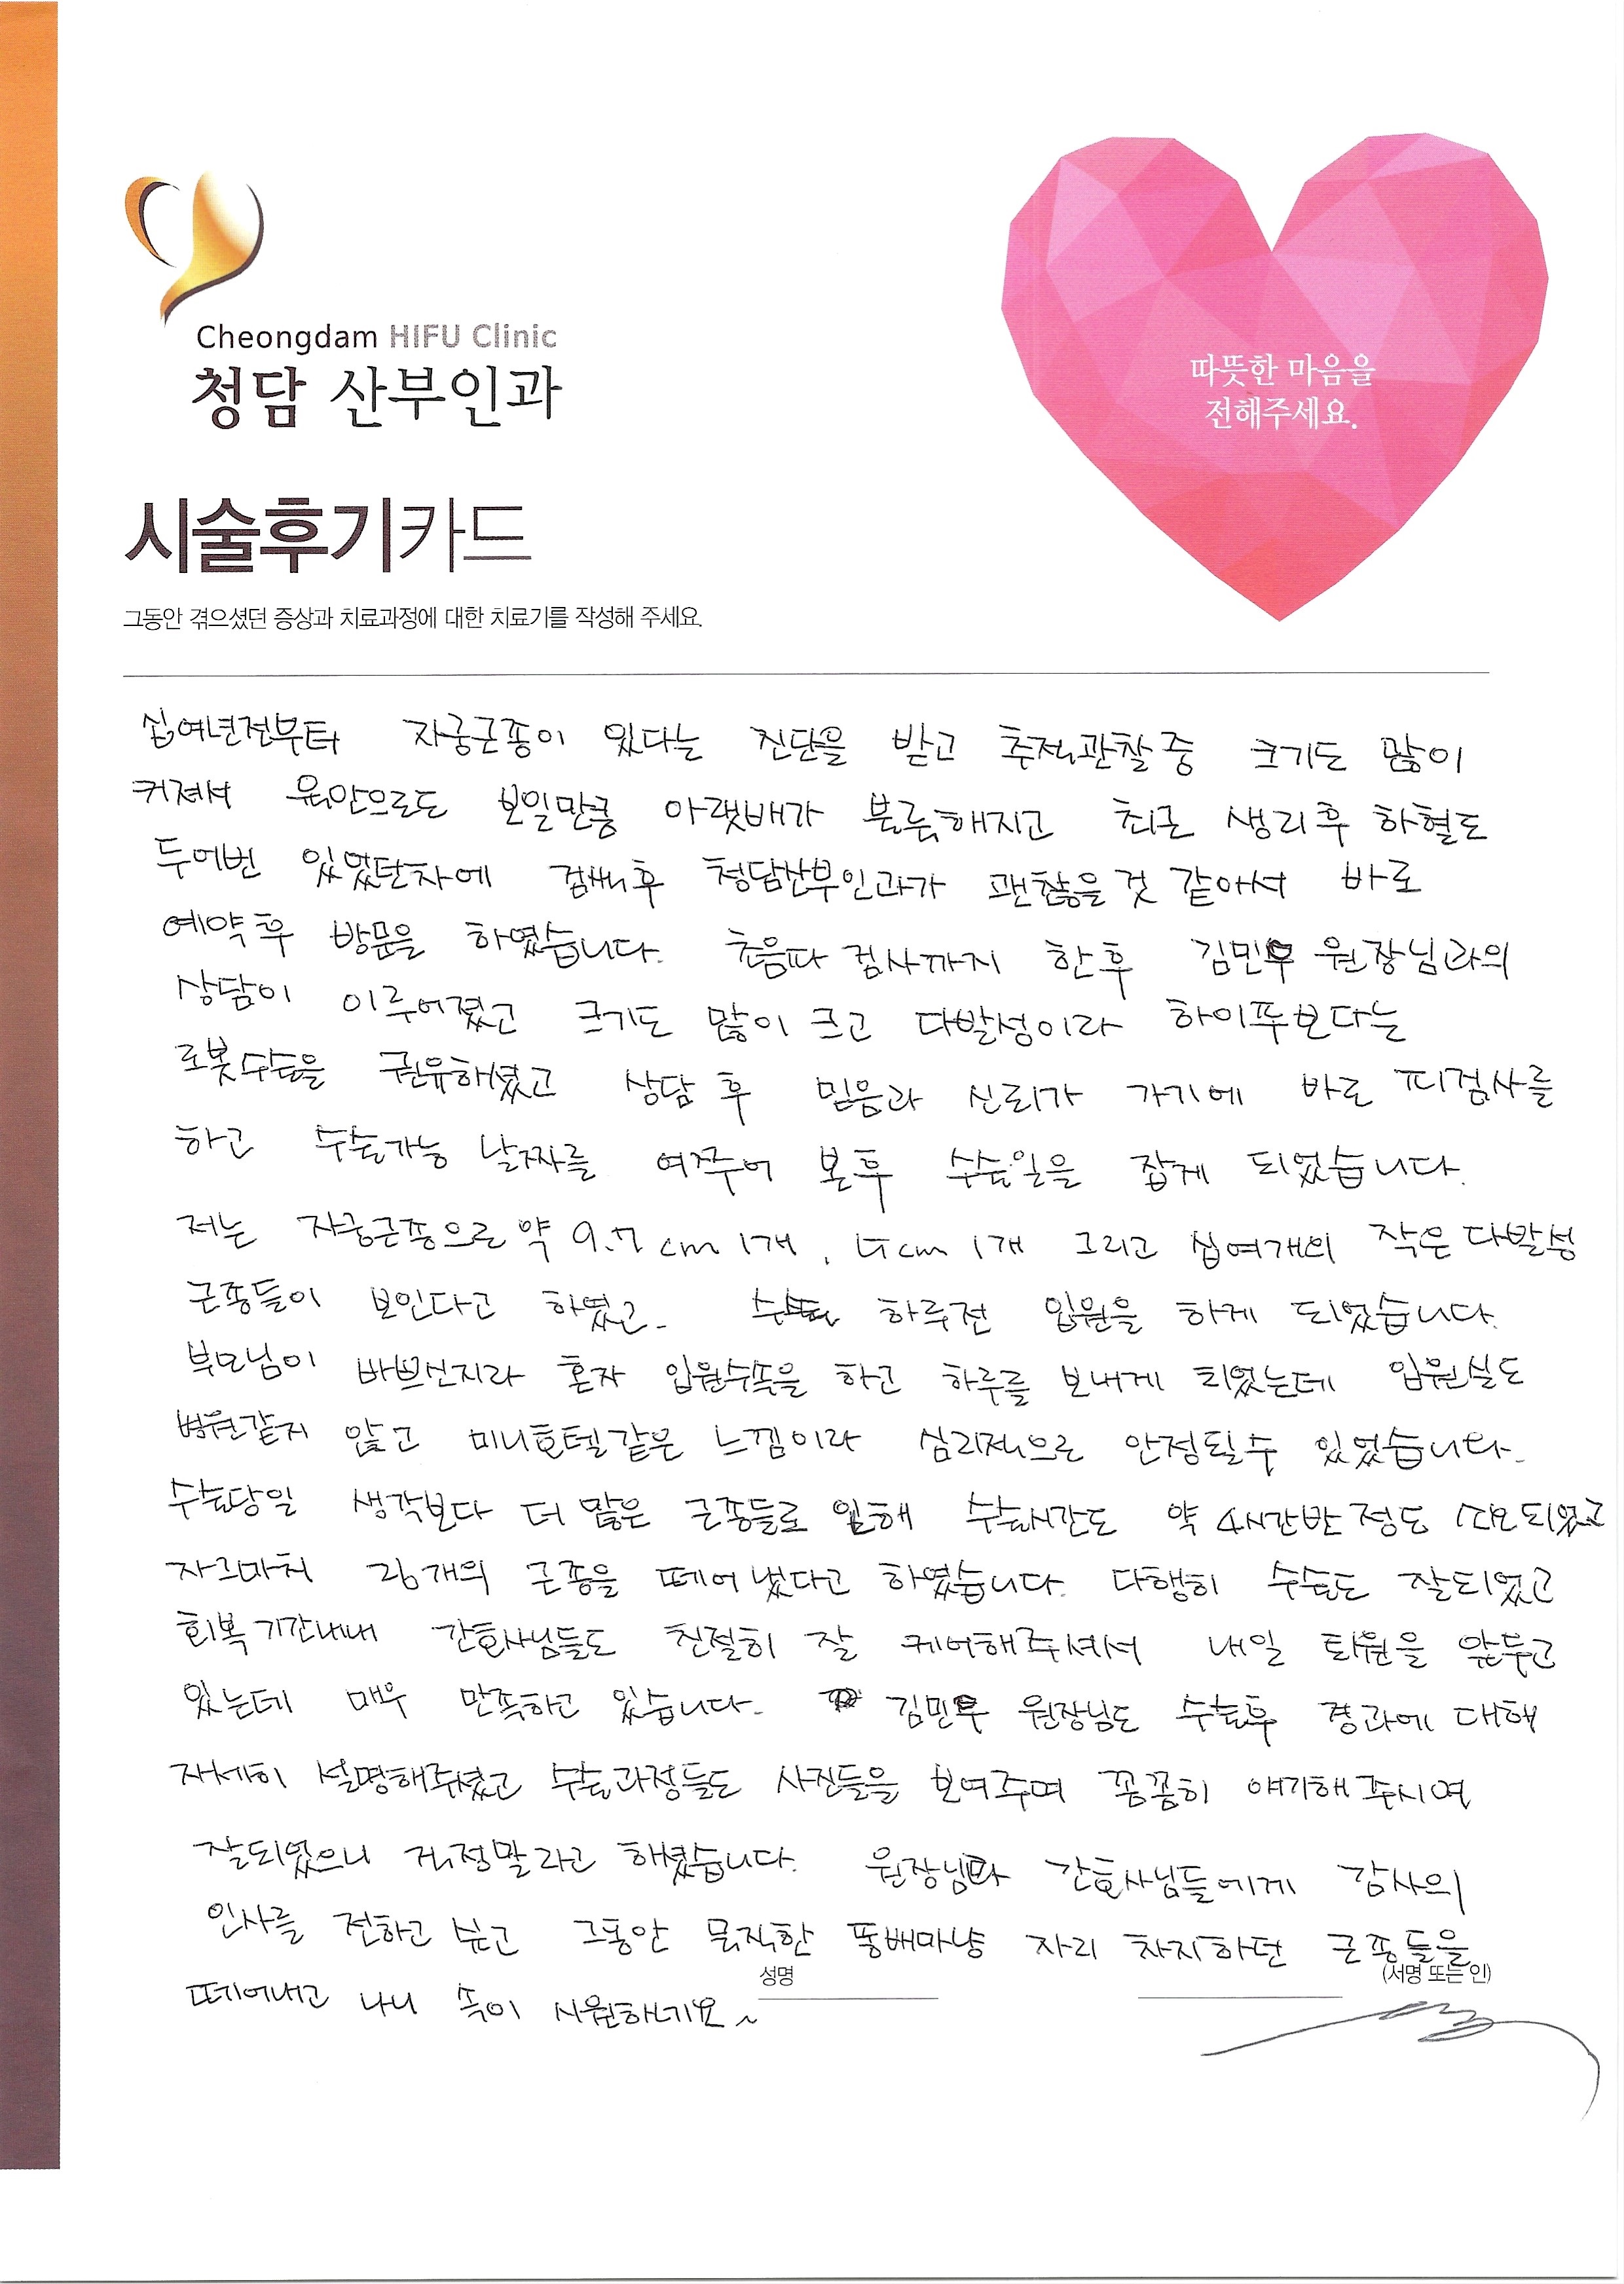 Cheongdam HIFU Clinic
청담 산부인과
따뜻한 마음을
전해주세요.
시술후기카드
그동안 겪으셨던 증상과 치료과정에 대한 치료기를 작성해 주세요.
십여년전부터 자궁근종이 있다는 진단을 받고 추적관찰중 크기도 많이
커져서 육안으로도 보일만큼 아랫배가 볼록해지고 최근 생리후 하혈도
두어번 있었단차에 검색후 청담산부인과가 괜찮을것 같아서 바로
예약후 방문을 하였습니다. 초음파 검사까지 한후 김민우 원장님과의
상담이 이루어졌고 크기도 많이 크고 다발성이라 하이푸보다는
로봇수술을 권유하셨고 상담 후 믿음과 신뢰가 가기에 바로 피검사를
하고 수술가능 날짜를 여쭈어 본후 수술일을 잡게 되었습니다.
저는 자궁근종으로 약 9.7cm 1개, 5cm 1개 그리고 십여개의 작은 다발성
근종들이 보인다고 하였고. 수술 하루전 입원을 하게 되었습니다.
부모님이 바쁘신지라 혼자 입원수속을 하고 하루를 보내게 되었는데 입원실도
병원같지 않고 미니호텔같은 느낌이라 심리적으로 안정될수 있었습니다.
수술당일 생각보다 더 많은 근종들로 인해 수술시간도 약 4시간반 정도 소요되었고
자그마치 26개의 근종을 떼어냈다고 하였습니다. 다행히 수술도 잘되었고
회복기간내내 간호사님들도 친절히 잘 케어해주셔서 내일 퇴원을 앞두고
있는데 매우 만족하고 있습니다. 김민우 원장님도 수술후 경과에 대해
자세히 설명해주셨고 수술과정들도 사진들을 보여주며 꼼꼼히 얘기해주시며
잘되었으니 걱정말라고 해셨습니다. 원장님과 간호사님들에게 감사의
인사를 전하고 싶고 그동안 묵직한 똥배마냥 자리 차지하던 근종들을
떼어내고 나니 속이 시원하네요~
성명
(서명 또는 인)